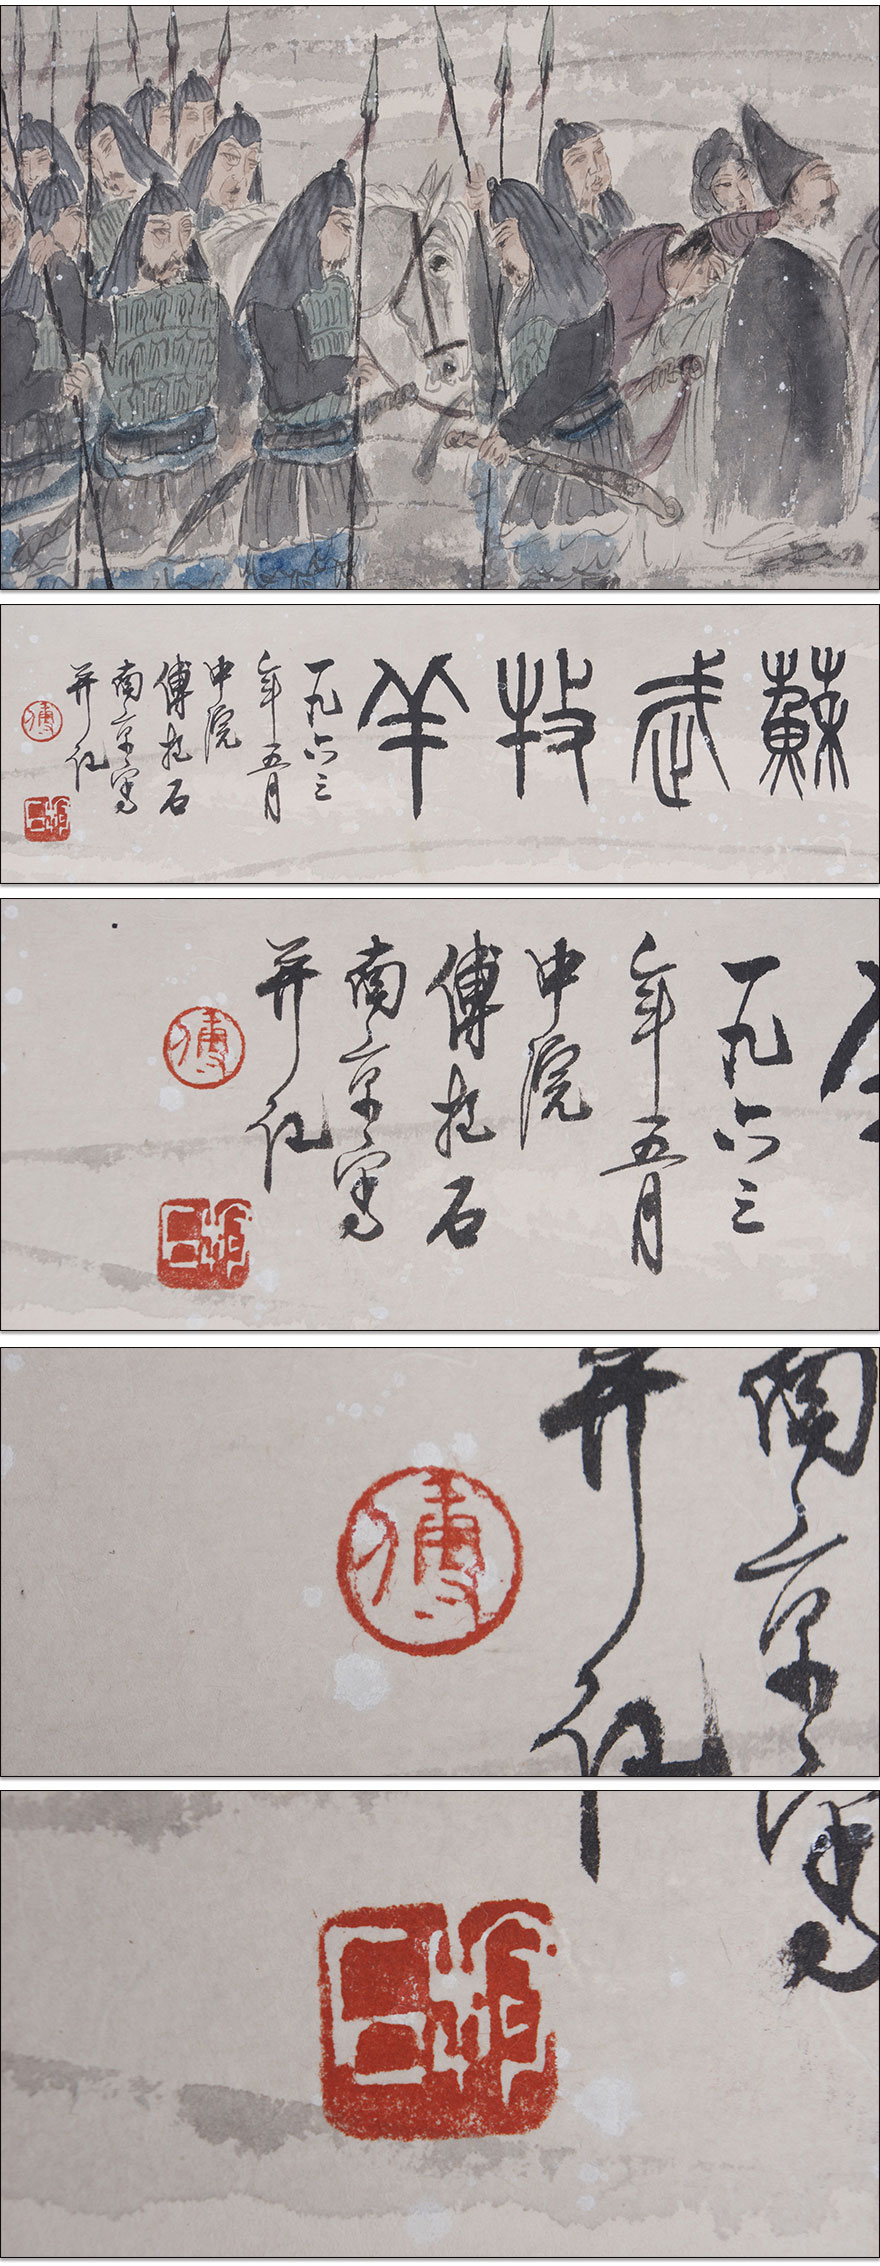 蘇武牧羊
一九六三
年五月
中浣
傅抱石
南京寫
并記
傅
一九六三
年五月
中浣
傅抱石
南京寫
并記
傅
南京
并記
傅
寫